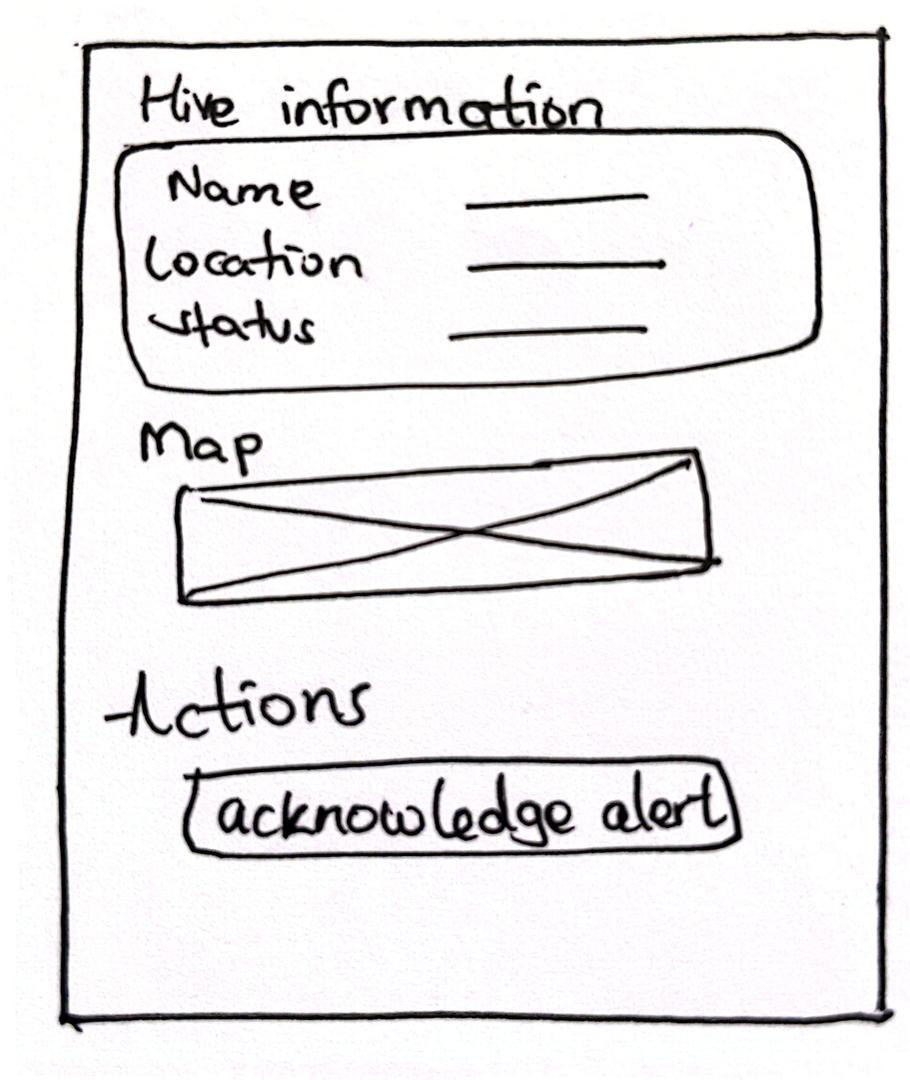 Hive information
Name
Location
Status
Map
Actions
acknowledge alert